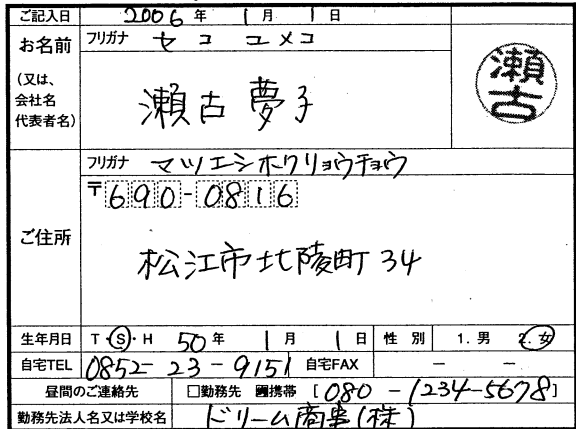 ご記入日 2006年 1月 1日
お名前
(又は、
会社名
代表者名)
フリガナ セコ ユメコ
瀬古 夢子
瀬古
ご住所
フリガナ マツエシホクリョウチョウ
〒690-0816
松江市北陵町 34
生年月日 T・S・H 50年 1月 1日 性別 1.男 2.女
自宅TEL 0852-23-9151 自宅FAX － －
昼間のご連絡先 □勤務先 ■携帯 [080-1234-5678]
勤務先法人名又は学校名 ドリーム商事(株)